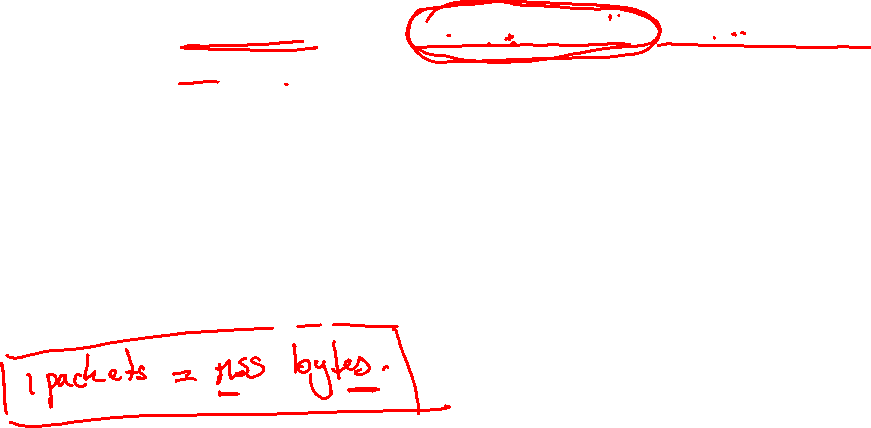 1 packets = MSS bytes.